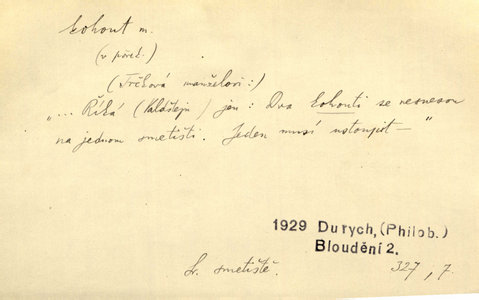 kohout m.
(v pořek.)
(Trčková manželovi:)
„... Říká (Valdštejn) jen: Dva kohouti se nesnesou
na jednom smetišti. Jeden musí ustoupit —"
1929 Durych, (Philob.)
Bloudění 2.
Sr. smetiště. 327, 7.